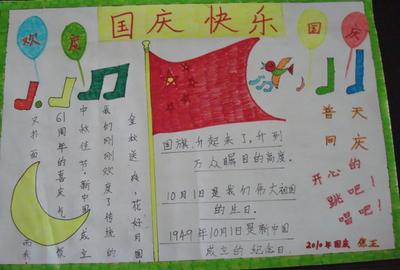 国庆快乐
欢度
国庆
金秋送爽,花好月圆
我们刚刚欢度了传统的
中秋佳节,新中国成立
61周年的喜庆气氛
又扑面而来
国旗升起来了,升到
万众瞩目的高度。
10月1日是我们伟大祖国
的生日。
1949年10月1日是新中国
成立的纪念日。
普天
同庆
开心的
跳吧!
唱吧!
2010年国庆